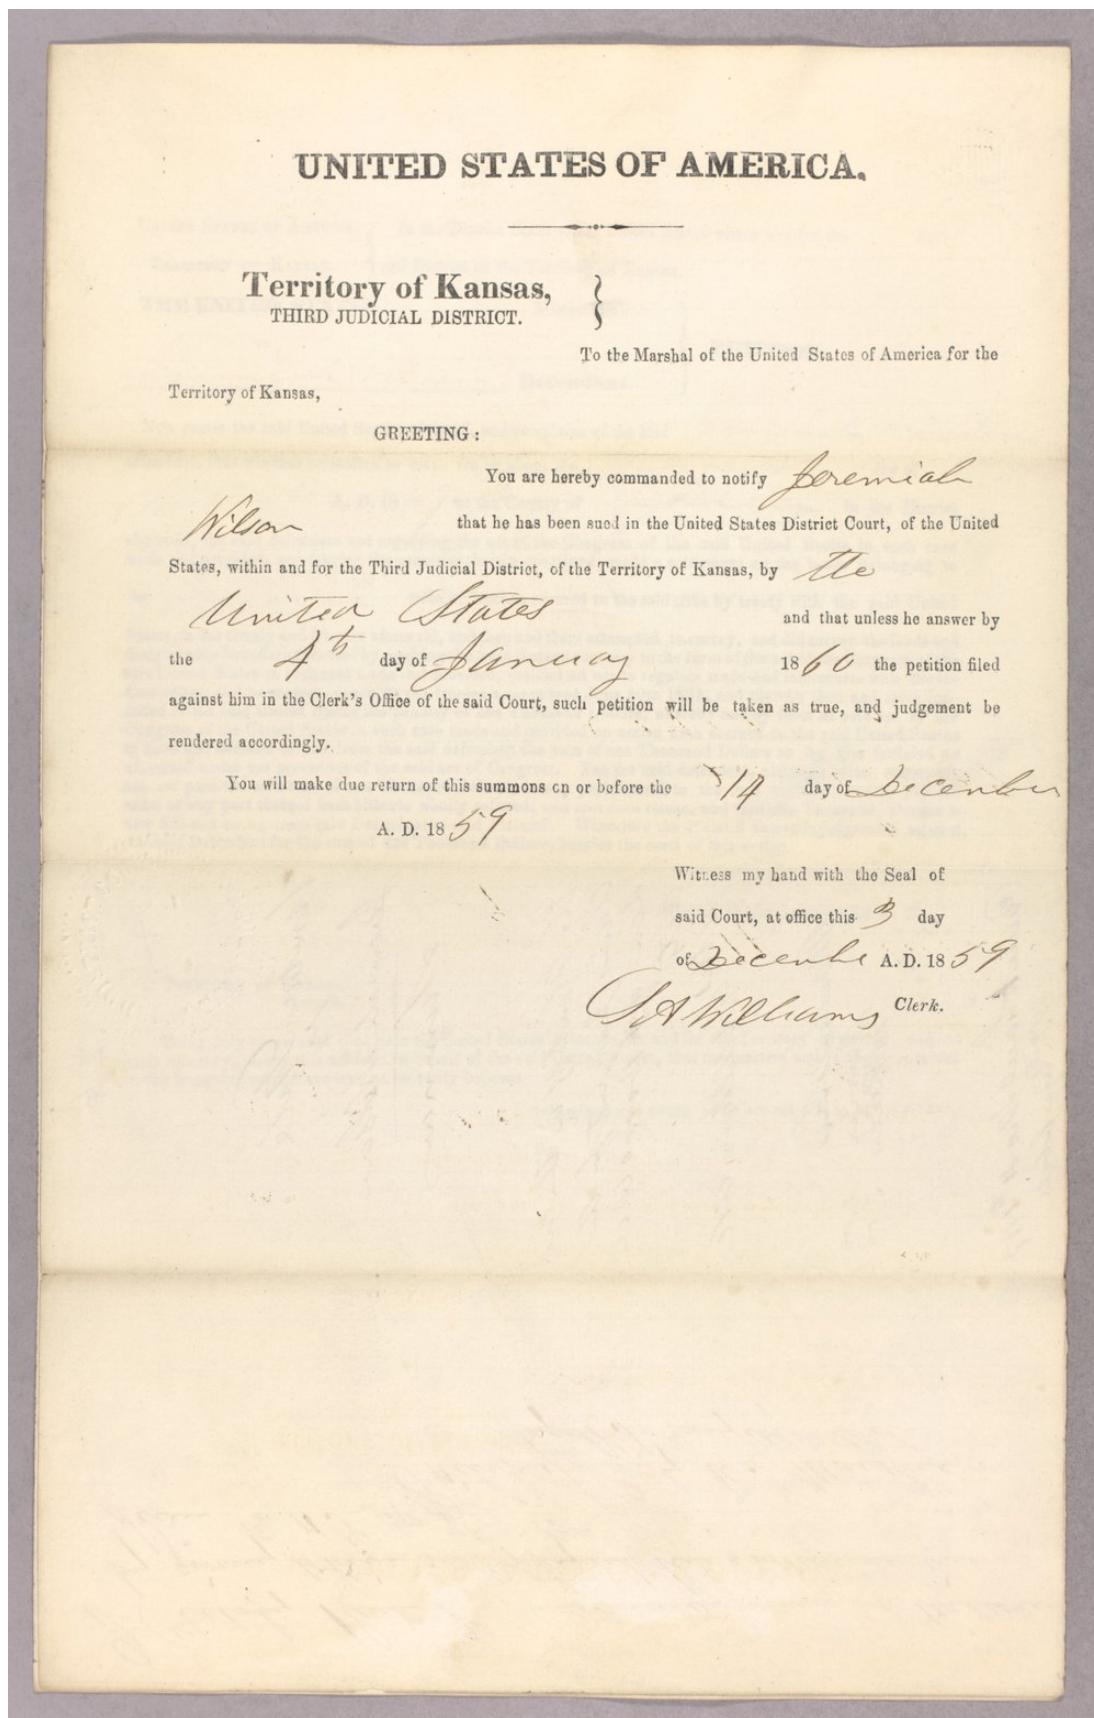 UNITED STATES OF AMERICA.
Territory of Kansas,
THIRD JUDICIAL DISTRICT.
To the Marshal of the United States of America for the
Territory of Kansas,
GREETING:
You are hereby commanded to notify Jeremiah
Wilson that he has been sued in the United States District Court, of the United
States, within and for the Third Judicial District, of the Territory of Kansas, by the
United States and that unless he answer by
the 4th day of January 1860 the petition filed
against him in the Clerk's Office of the said Court, such petition will be taken as true, and judgement be
rendered accordingly.
You will make due return of this summons on or before the 14 day of December
A. D. 1859
Witness my hand with the Seal of
said Court, at office this 3 day
of Decembe A. D. 1859
Williams Clerk.